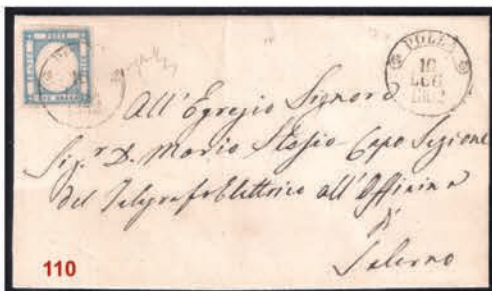 POLLA
10
LUG
1862
All'Egregio Signore
Sig.r D. Mario Stasio Capo Sezione
del Telegrafo Elettrico all'Officina
di
Salerno
110